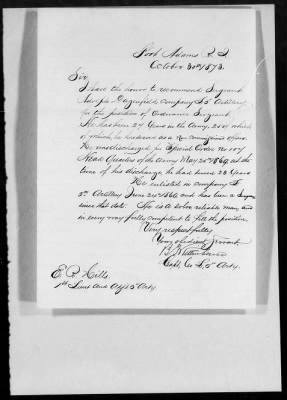 Fort Adams R. I.
October 30th 1873.
Sir,
I have the honor to recommend Sergeant
Adolph Company I 5th Artillery,
for the position of Ordnance Sergeant
He has been 27 Years in the Army, 20 of
which, he has been a Non Commissioned officer.
He was discharged per Special Order No 107
Head Quarters of the Army May 20th 1869 at the
time of his discharge, he had served 23 Years
He enlisted in Company
5th Artillery June 20th 1869 and has been a
since that date. He is a sober reliable man, and
in every way fully competent to fill the position.
Very respectfully
Your obedient servant
Capt. 5th Arty.
E. R. Hills
1st Lieut and Adjt 5th Arty.